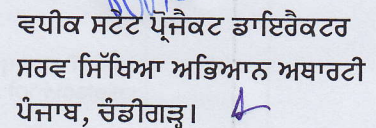 ਵਧੀਕ ਸਟੇਟ ਪ੍ਰੋਜੈਕਟ ਡਾਇਰੈਕਟਰ
ਸਰਵ ਸਿੱਖਿਆ ਅਭਿਆਨ ਅਥਾਰਟੀ
ਪੰਜਾਬ, ਚੰਡੀਗੜ੍ਹ।